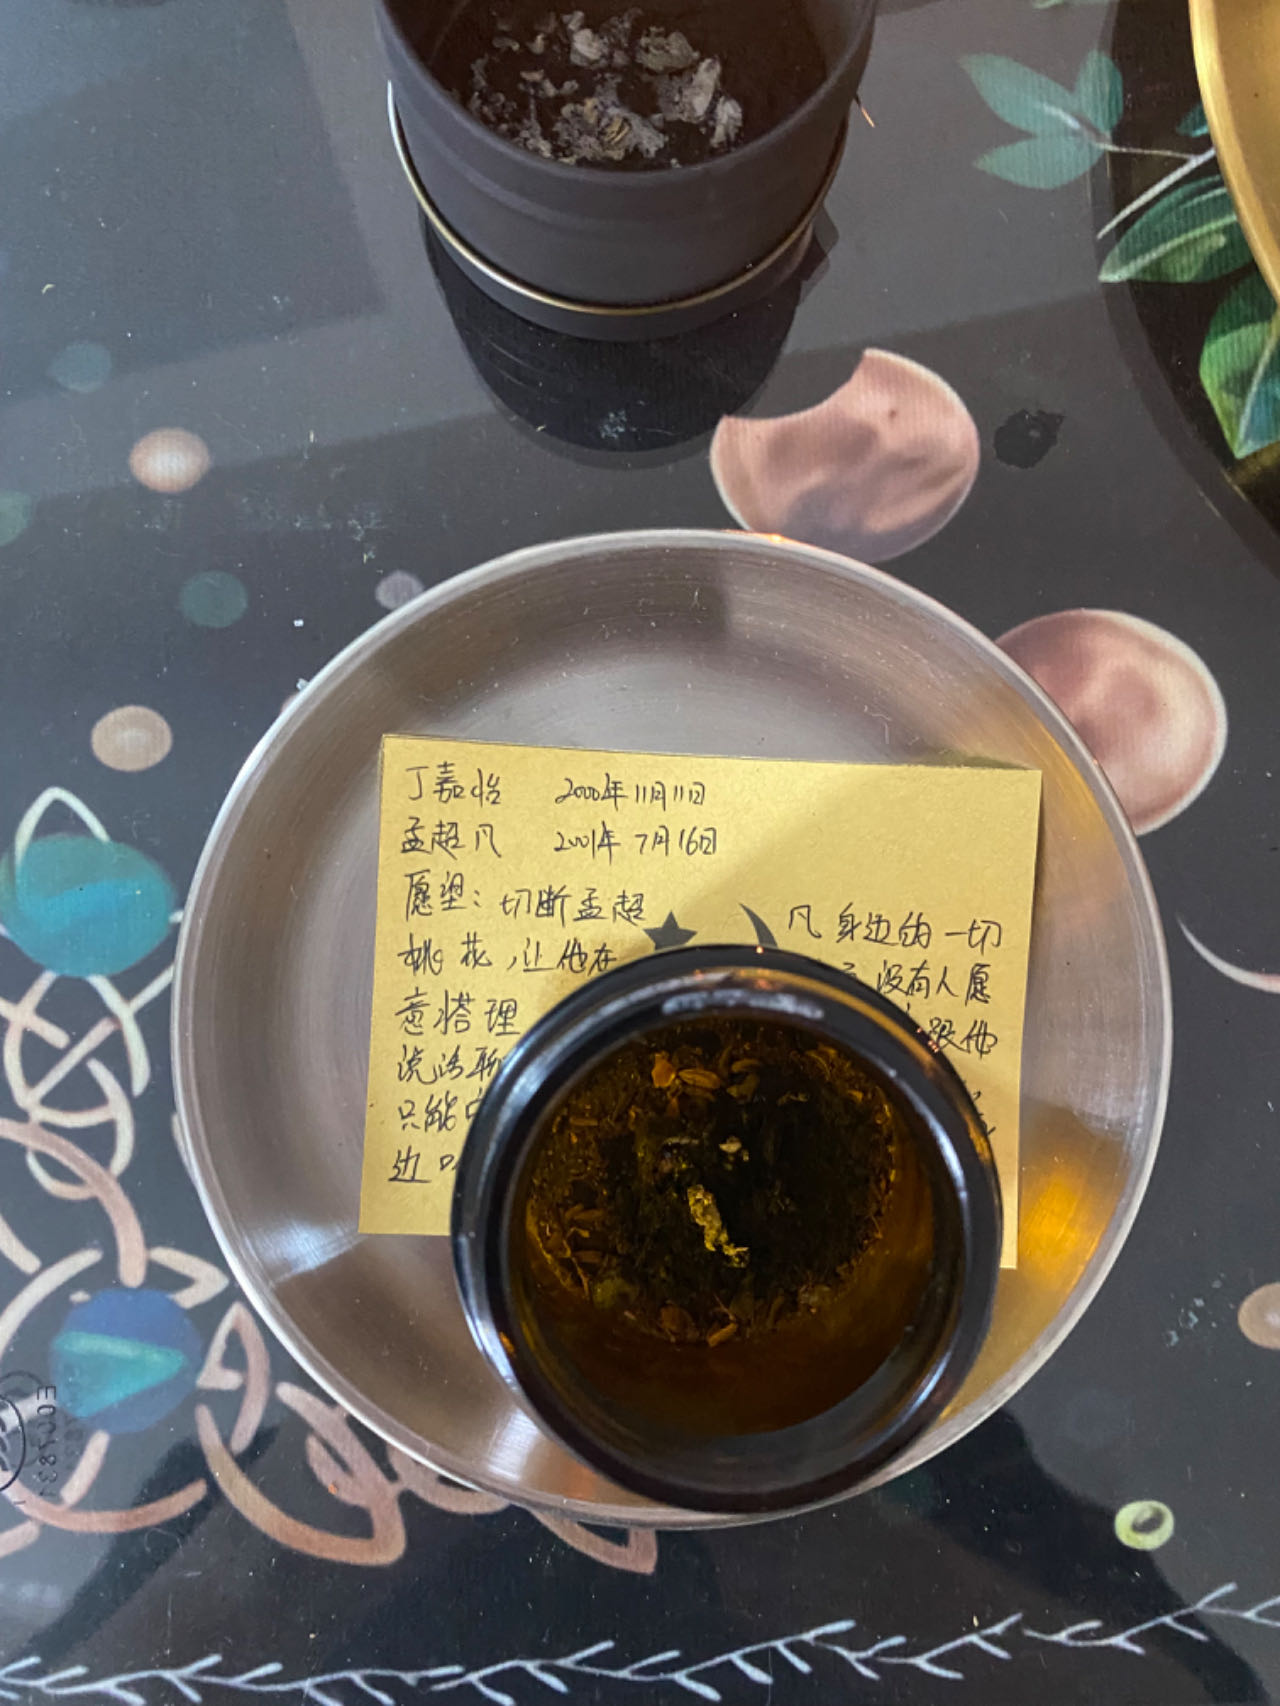 丁嘉怡 2000年11月11日
孟超凡 2001年7月16日
愿望：切断孟超凡身边的一切
桃花，让他在 没有人愿
意搭理 跟他
说话聊
只能
边